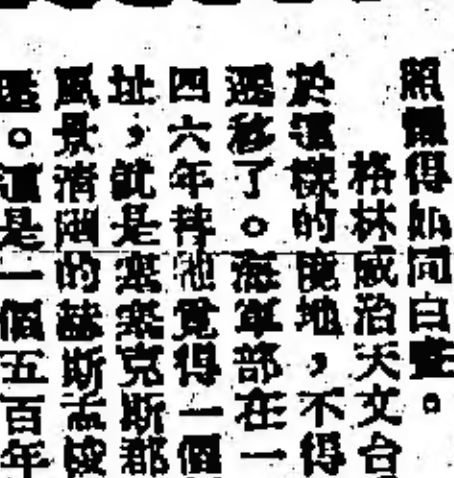 照耀得如同白晝。
格林威治天文台
於這樣的境地，不得
遷移了。海軍部在一
四六年替牠覓得一個
址，就是塞克斯郡
風景清幽的赫斯孟
。這是一個五百年